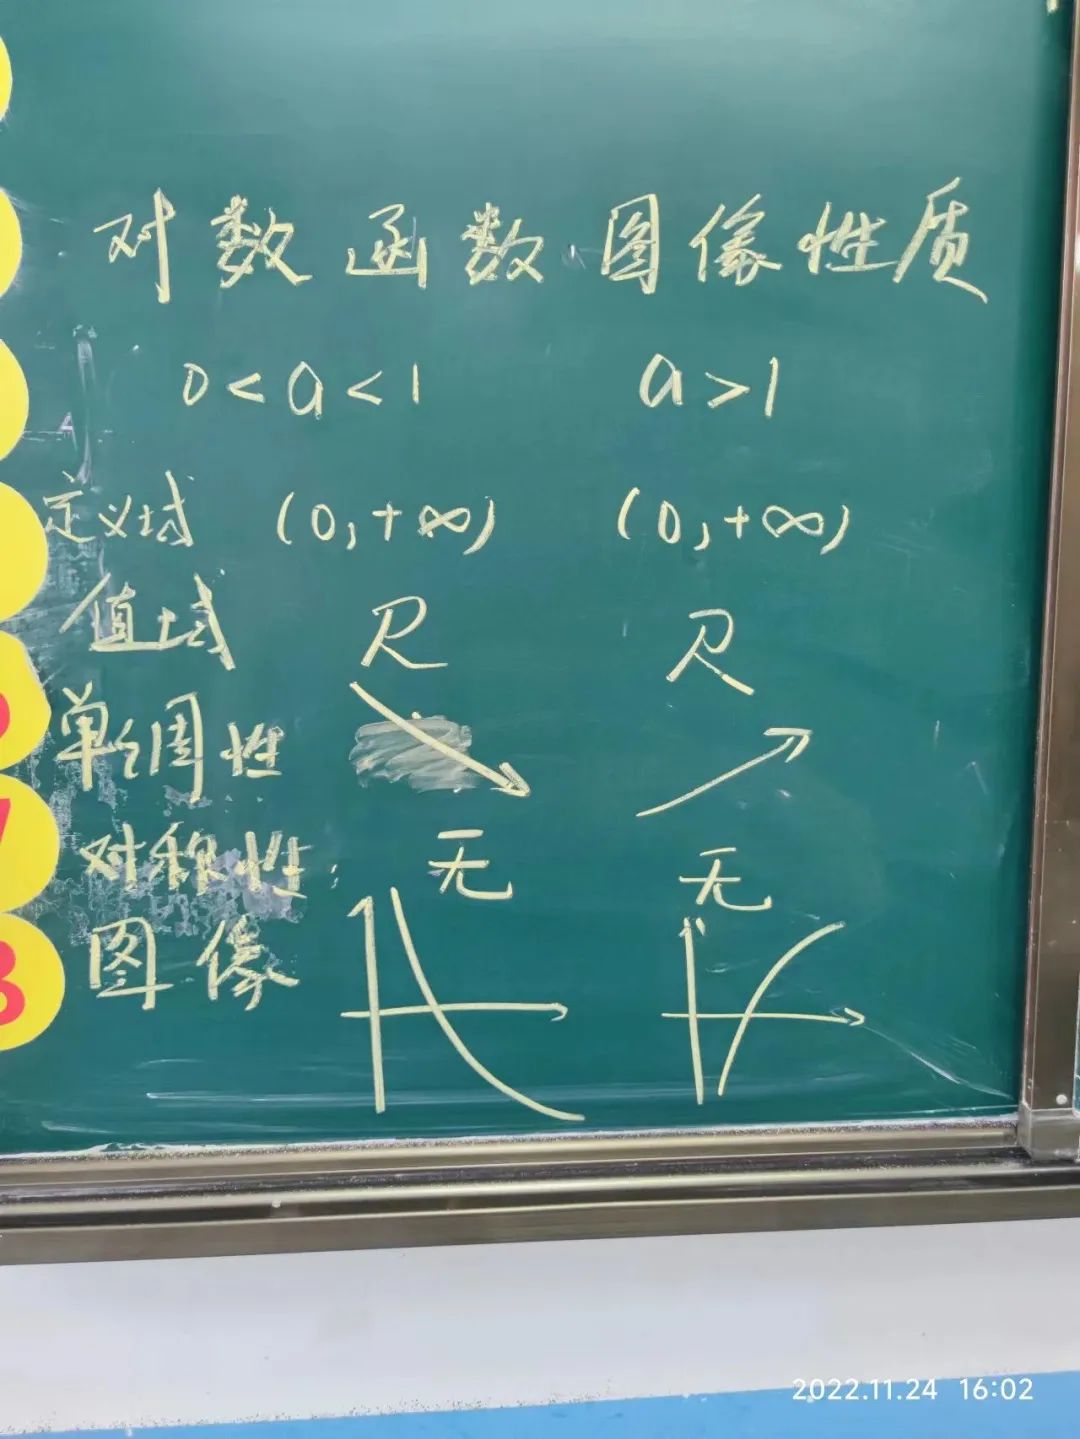 对数函数图像性质
0<a<1 a>1
定义域 (0,+∞) (0,+∞)
值域 R R
单调性
对称性: 无 无
图像
8
2022.11.24 16:02